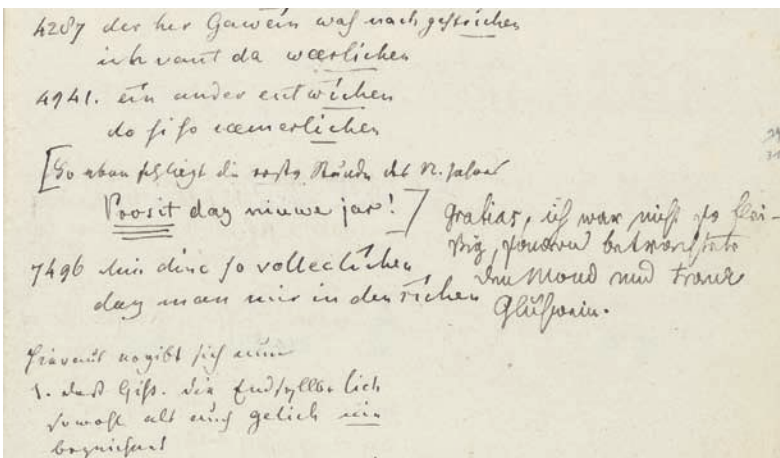 4287 der her Gawein was nachgestrichen
ich vant da wærlichen
4941. ein ander entwichen
do si so iæmerlichen
[So eben schlägt die erste Stunde des n. Jahres
Prosit daz niuwe jar!]
Gratias, ich war nicht so flei-
ßig, sondern betrachtete
den Mond und trank
Glühwein.
7496 min dinc so volleclichen
daz man mir in den richen
Hieraus ergibt sich nun
1. daß Hss. die Endsylbe lich
sowohl als auch gelich
bezeichnet